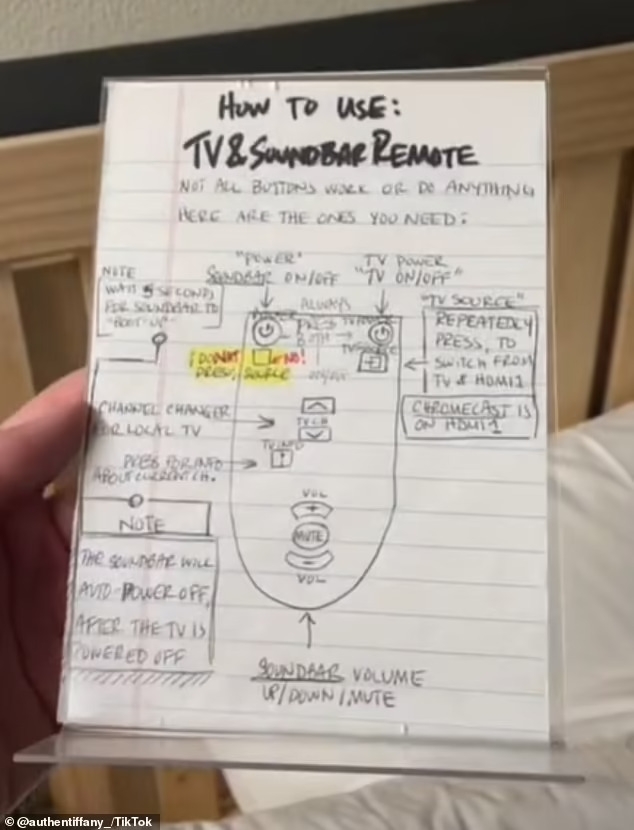 HOW TO USE:
TV & SOUNDBAR REMOTE
NOT ALL BUTTONS WORK OR DO ANYTHING
HERE ARE THE ONES YOU NEED:
"POWER"
SOUNDBAR ON/OFF
TV POWER
"TV ON/OFF"
NOTE
WAIT 5 SECONDS
FOR SOUNDBAR TO
"BOOT-UP"
ALWAYS
BOTH
"TV SOURCE"
REPEATEDLY
PRESS, TO
SWITCH FROM
TV & HDMI1
CHROMECAST IS
ON HDMI1
¡DO NOT NO!
PRESS, SOURCE
CHANNEL CHANGER
FOR LOCAL TV
TV CH
TV INFO
i
PRESS FOR INFO
ABOUT CURRENT CH.
VOL
+
MUTE
-
VOL
NOTE
THE SOUNDBAR WILL
AUTO-POWER OFF,
AFTER THE TV IS
POWERED OFF
SOUNDBAR VOLUME
UP/DOWN/MUTE
© @authentiffany_/TikTok